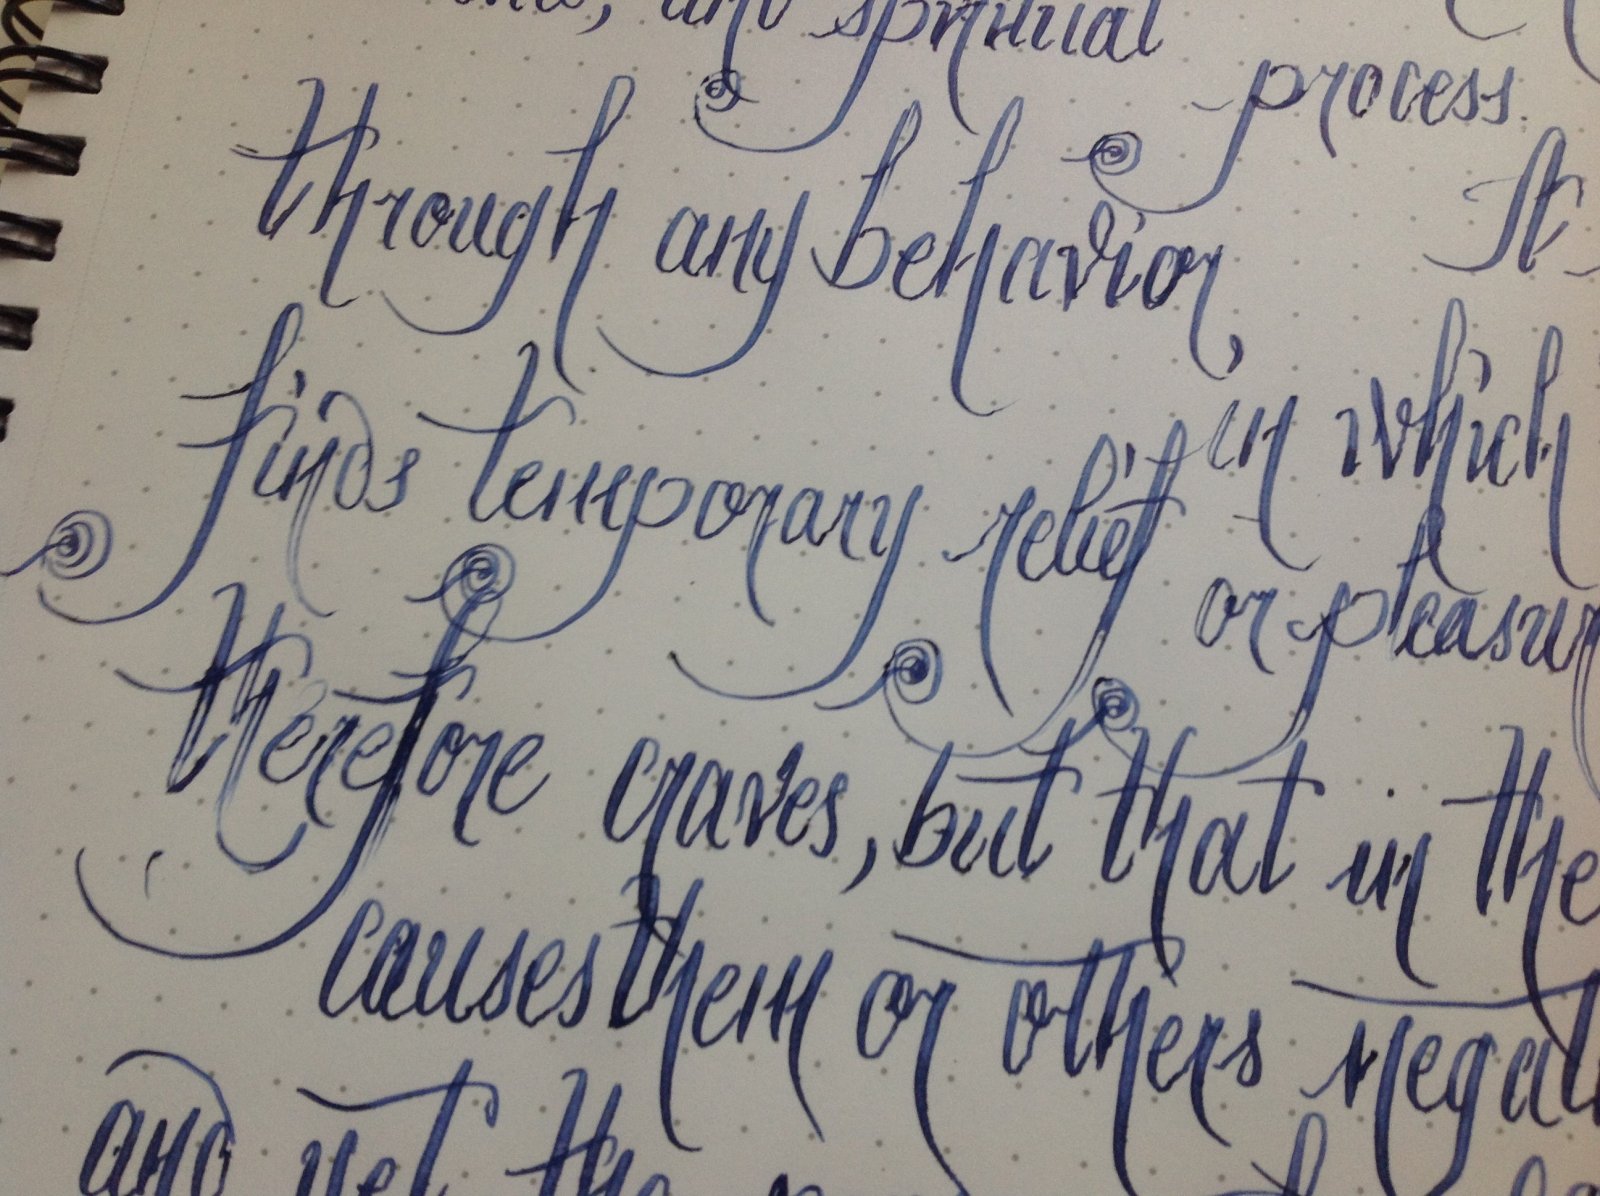 and spiritual process.
through any behavior, It
finds temporary relief in which
therefore craves, but that in the or pleasur
causes them or others negat
and yet the